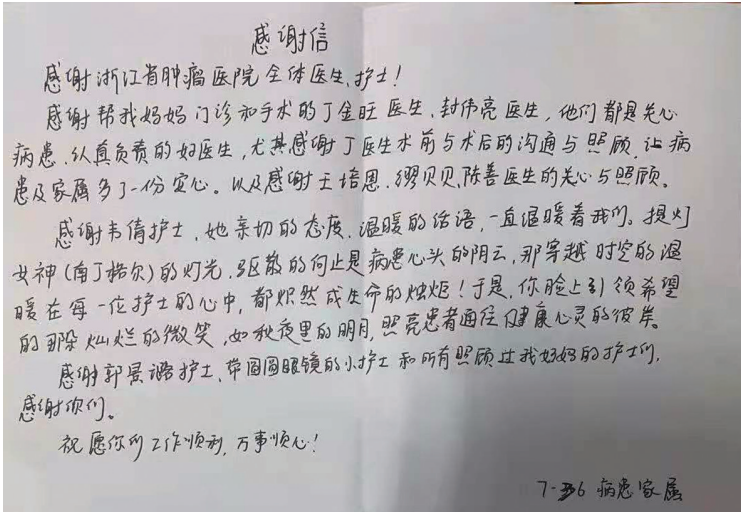 感谢信
感谢浙江省肿瘤医院全体医生、护士！
感谢帮我妈妈门诊和手术的丁金旺医生、封伟亮医生，他们都是关心
病患、认真负责的好医生，尤其感谢丁医生术前与术后的沟通与照顾，让病
患及家属多了一份安心。以及感谢王培恩、缪贝贝、陈善医生的关心与照顾。
感谢韦倩护士，她亲切的态度、温暖的话语，一直温暖着我们。提灯
女神（南丁格尔）的灯光，驱散的何止是病患心头的阴云，那穿越时空的温
暖在每一位护士的心中，都炽然成生命的烛炬！于是，你脸上引领希望
的那朵灿烂的微笑，如秋夜里的明月，照亮患者通往健康心灵的彼岸。
感谢郭景璐护士、带圆圆眼镜的小护士和所有照顾过我妈妈的护士们，
感谢你们。
祝愿你们工作顺利，万事顺心！
7-36 病患家属